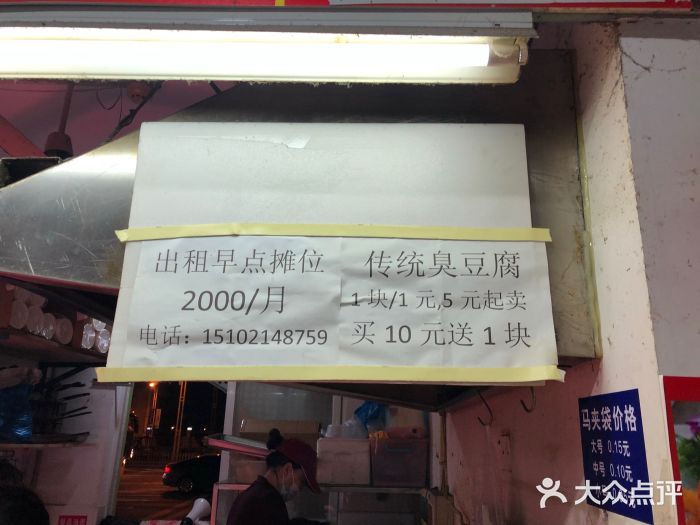 出租早点摊位
2000/月
电话：15102148759
传统臭豆腐
1块/1元,5元起卖
买10元送1块
马夹袋价格
大号 0.15元
中号 0.10元
大众点评